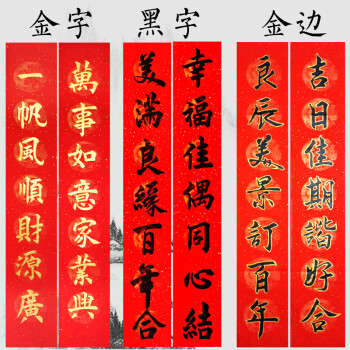 金字
黑字
金边
萬事如意家業興
一帆風順財源廣
幸福佳偶同心結
美滿良緣百年合
吉日佳期諧好合
良辰美景訂百年